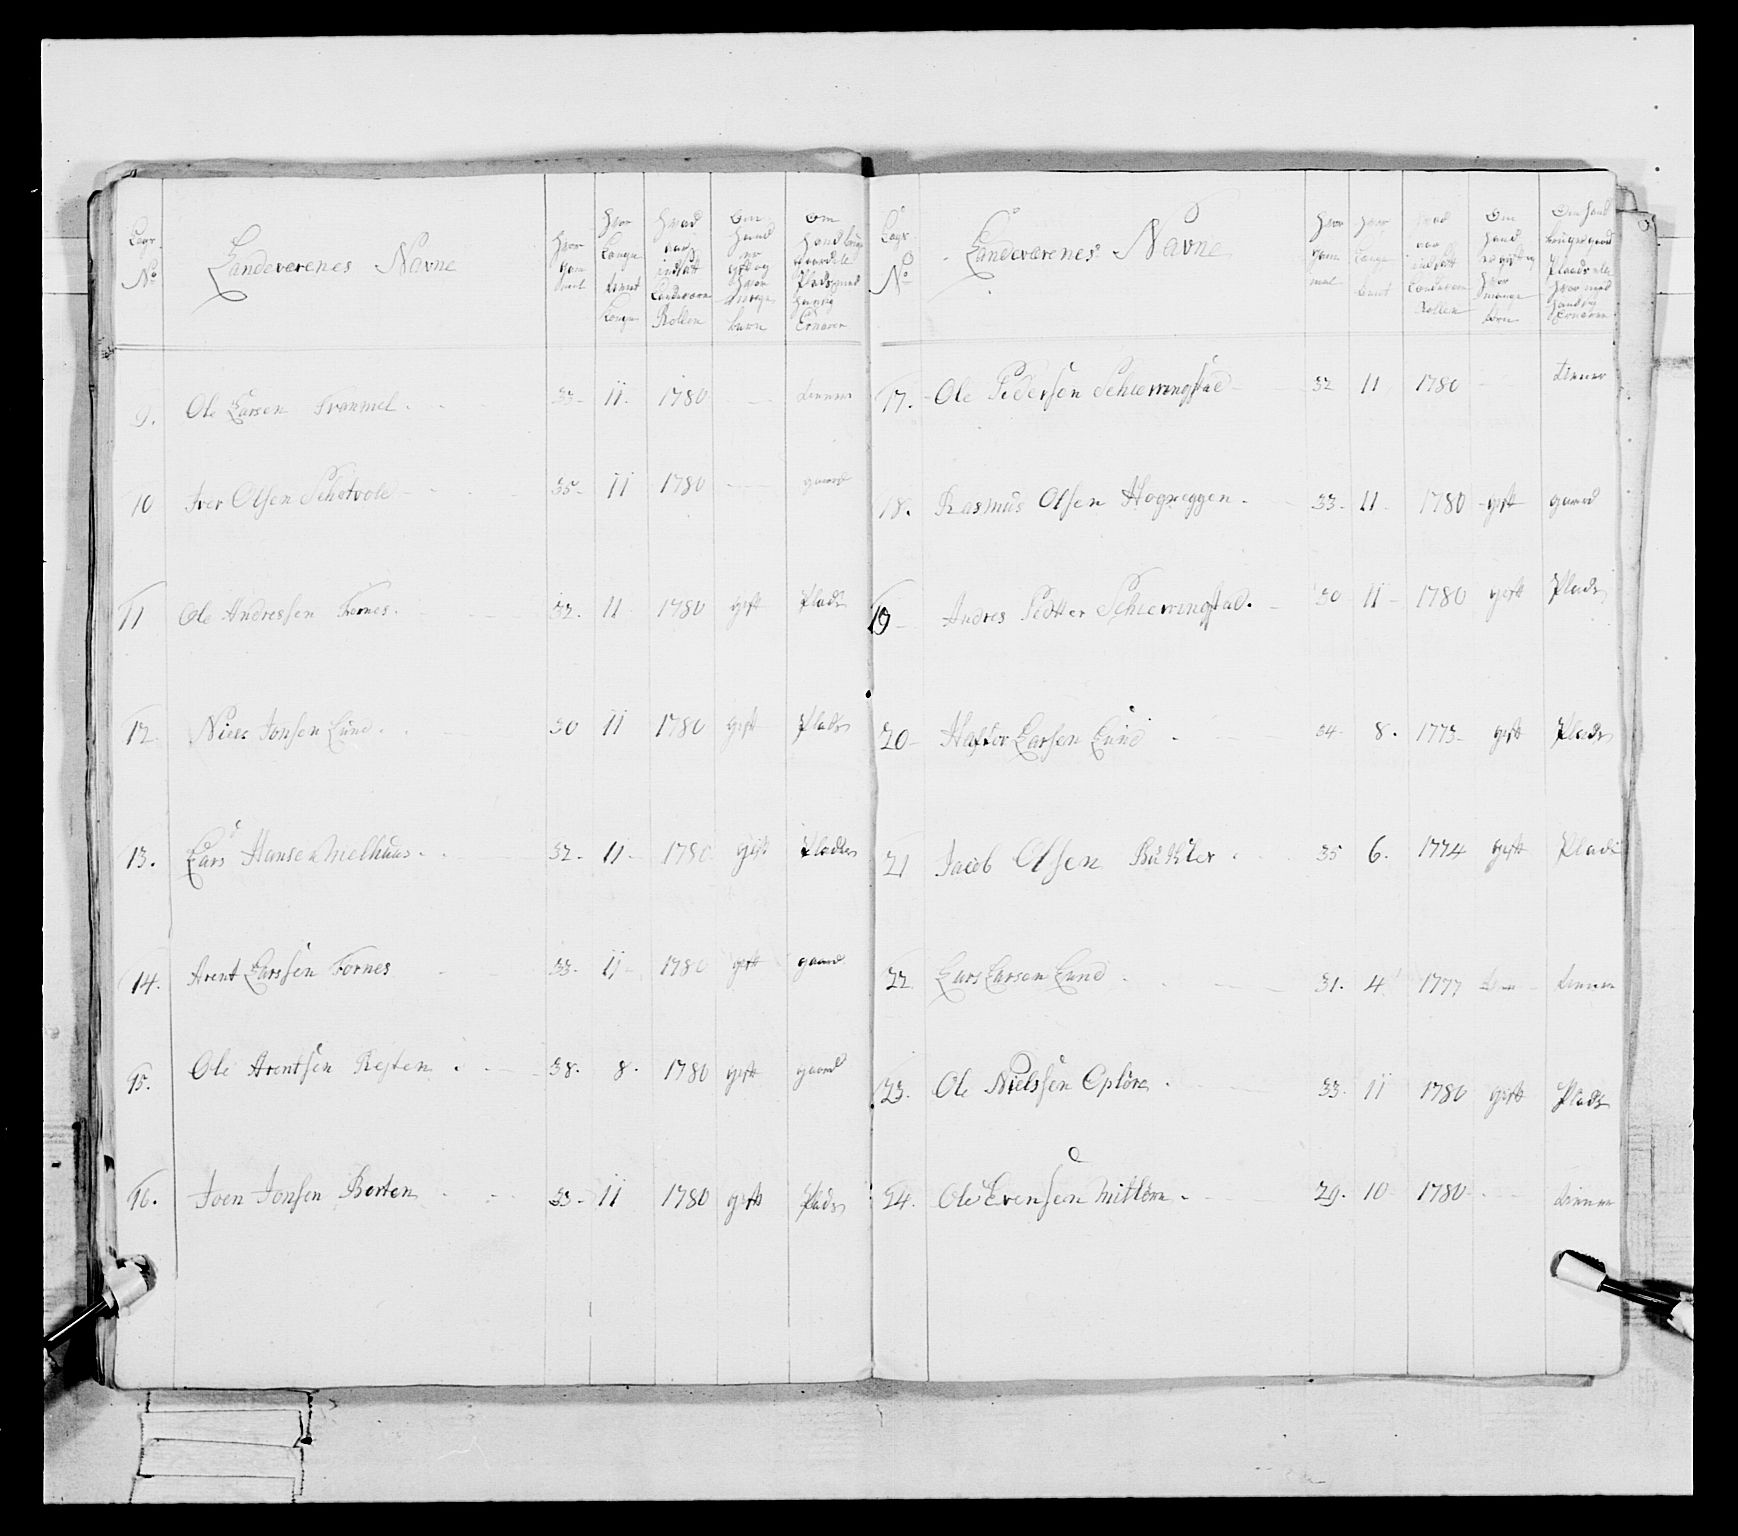 Lægs No Landeværenes Navne Hvor gam mel Hvor Længe tient Konge Hvad aar indsatt Landværn Rollen Om Hand er gift og Hvor mange barn Om Hand bruger gaard ell. Plads med Hvad Hand sig Ernærer
9. Ole Larsen Trommel 33 11 1780 tienner
10 Iver Olsen Schetvole 35 11 1780 gaard
11 Ole Andressen Fornes 32 11 1780 gift Plads
12 Niels Jonsen Lund 30 11 1780 gift Plads
13. Lars Hansen Melhuus 32 11 1780 gift Plads
14. Arent Larssen Fornes 33 11 1780 gift gaard
15. Ole Arentsen Resten 38 8 1780 gift gaard
16. Joen Jonsen Borten 33 11 1780 gift Plads
Lægs No Landeværenes Navne Hvor gam mel Hvor Længe tient Hvad aar indsatt Landværn Rollen Om Hand er gift og Hvor mange børn Om Hand bruger gaard Plads elle Hvor med Hand sig Ernærer
17. Ole Pedersen Schierringstad 32 11 1780 tienner
18. Rasmus Olsen Hogreggen 33 11 1780 gift gaard
19 Andres Pedtter Schierringstad 30 11 1780 gift Plads
20 Haftor Larsen Lund 34 8 1773 gift Plads
21 Jacob Olsen 35 6 1774 gift Plads
22 Lars Larsen Lund 31 4 1777 tienner
23. Ole Nielssen Opløra 33 11 1780 gift Plads
24. Ole Evensen Mitløra 29 10 1780 tienner